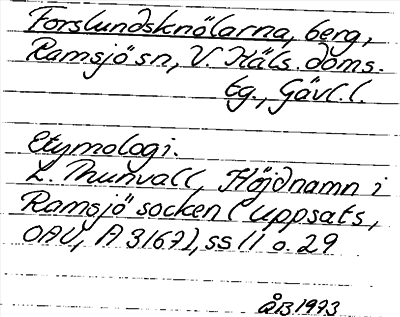 Forslundsknölarna, berg,
Ramsjö sn, V. Häls. doms.
tg., Gävl. l.
Etymologi.
L. Thunvall, Höjdnamn i
Ramsjö socken (uppsats,
OAU, A 3167), ss 11 o. 29
ÅB 1973